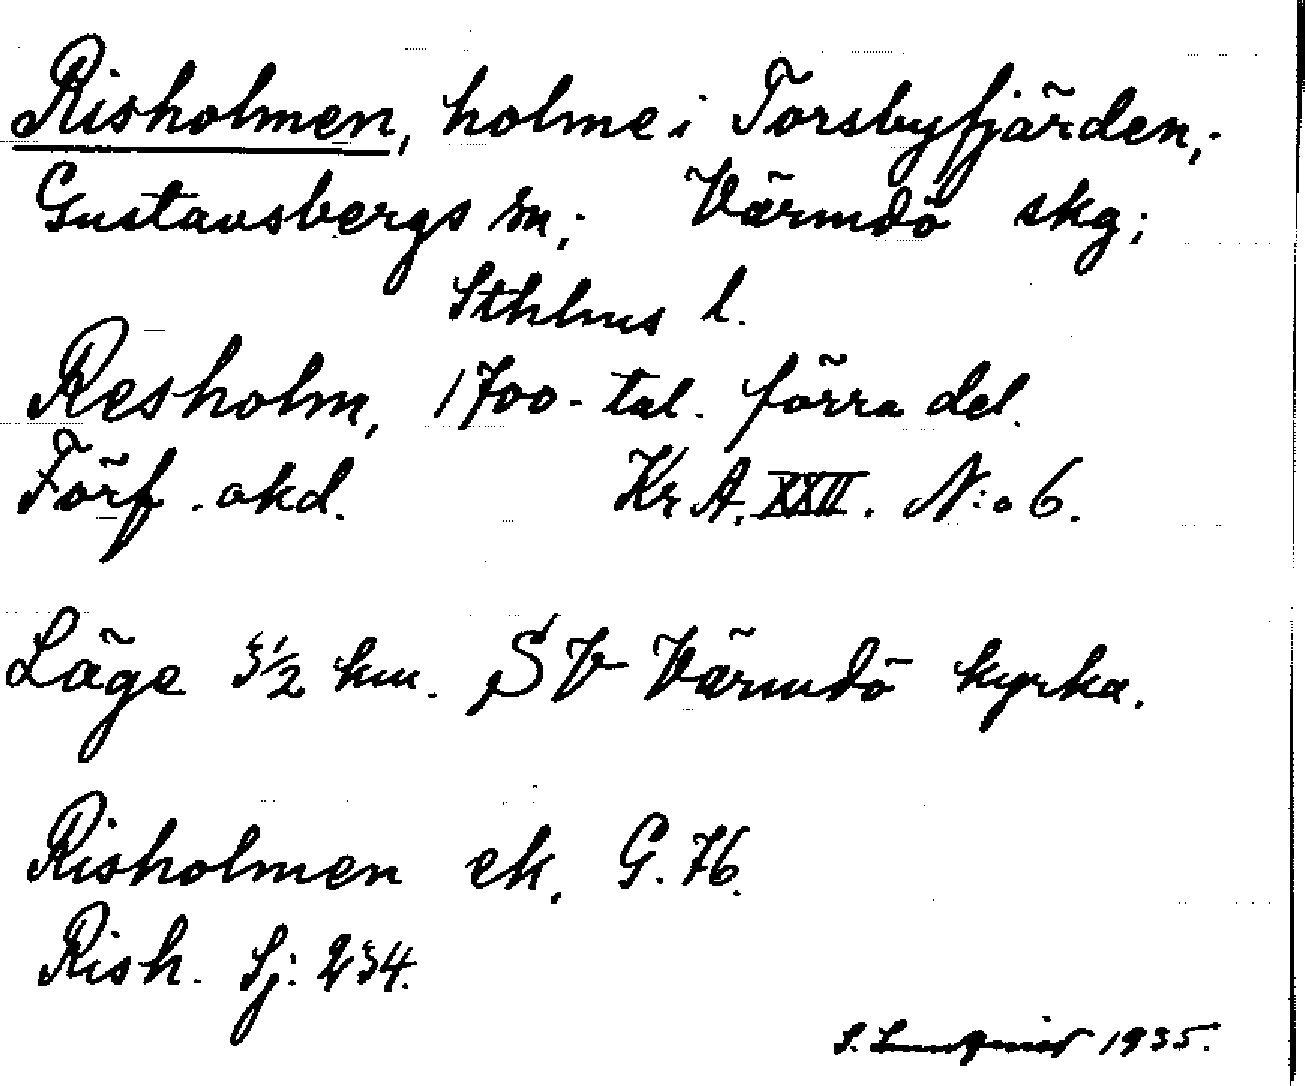 Risholmen, holme i Torsbyfjärden,
Gustavsbergs sn; Värmdö skg;
Sthlms l.
Resholm, 1700-tal. förra del.
Förf. okd. Kr A. XXII. N:o 6.
Läge 3½ km. SV Värmdö kyrka.
Risholmen ek. G. 76.
Rish. Sj: 234.
S. 1935.